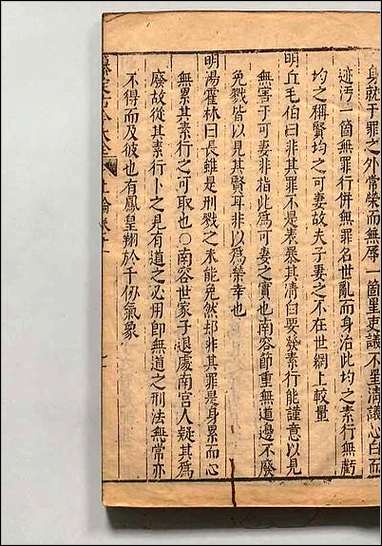 身就于罪之外常榮而無辱一箇里吏議不星清議心白而
迹汚一箇無罪行併無罪名世亂而身治此均之素行無虧
均之稱賢均之可妻故夫子妻之不在世網上較量
明丘毛伯曰非其罪不是表暴其清白要發素行能謹意以見
無害于可妻非指此爲可妻之實也南容節重無道邊不廢
免戮皆以見其賢耳非以爲榮幸也
明湯霍林曰長雖是刑戮之未能免然却非其罪是身累而心
無累其素行之可取也○南容世家子退處南宮人疑其爲
廢故從其素行卜之見有道之必用即無道之刑法無常亦
不得而及彼也有鳳皇翔於千仞氣象
上論